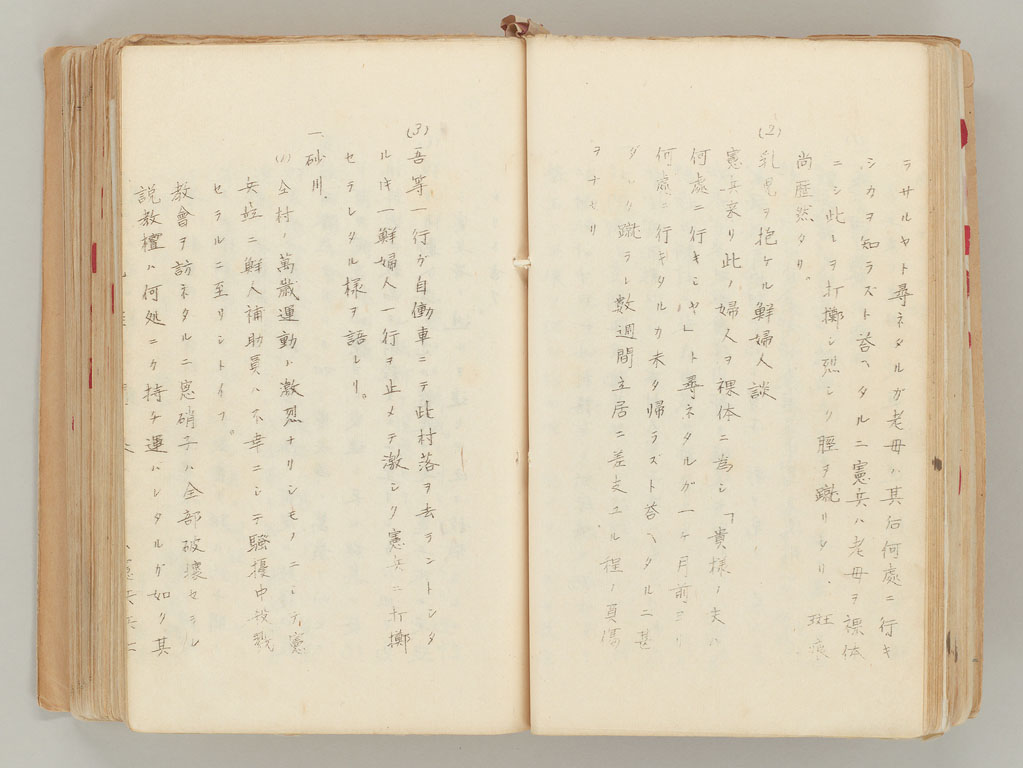 ラサルヤト尋ネタルガ老母ハ其后何處ニ行キ
シカヲ知ラズト答ヘタルニ憲兵ハ老母ヲ裸体
ニシ此レヲ打擲シ烈シク脛ヲ蹴リタリ、斑痕
尚歴然タリ。
(2)乳児ヲ抱ケル鮮婦人談
憲兵来リ此ノ婦人ヲ裸体ニ為シ「貴様ノ夫ハ
何處ニ行キシヤ」ト尋ネタルガ一ヶ月前ヨリ
何處ニ行キタルカ未タ帰ラズト答ヘタルニ甚
ダシク蹴ラレ數週間立居ニ差支ユル程ノ負傷
ヲナセリ
(3)吾等一行ガ自働車ニテ此村落ヲ去ラントシタ
ル時一鮮婦人一行ヲ止メテ激シク憲兵ニ打擲
セラレタル様ヲ語レリ。
一、砂川、
(1)全村ノ萬歳運動ハ激烈ナリシモノニシテ憲
兵並ニ鮮人補助員ハ不幸ニシテ騒擾中投戮
セラルニ至リシトイフ。
教會ヲ訪ネタルニ窓硝子ハ全部破壊セラレ
説教檀ハ何処ニカ持チ運バレタルガ如ク其